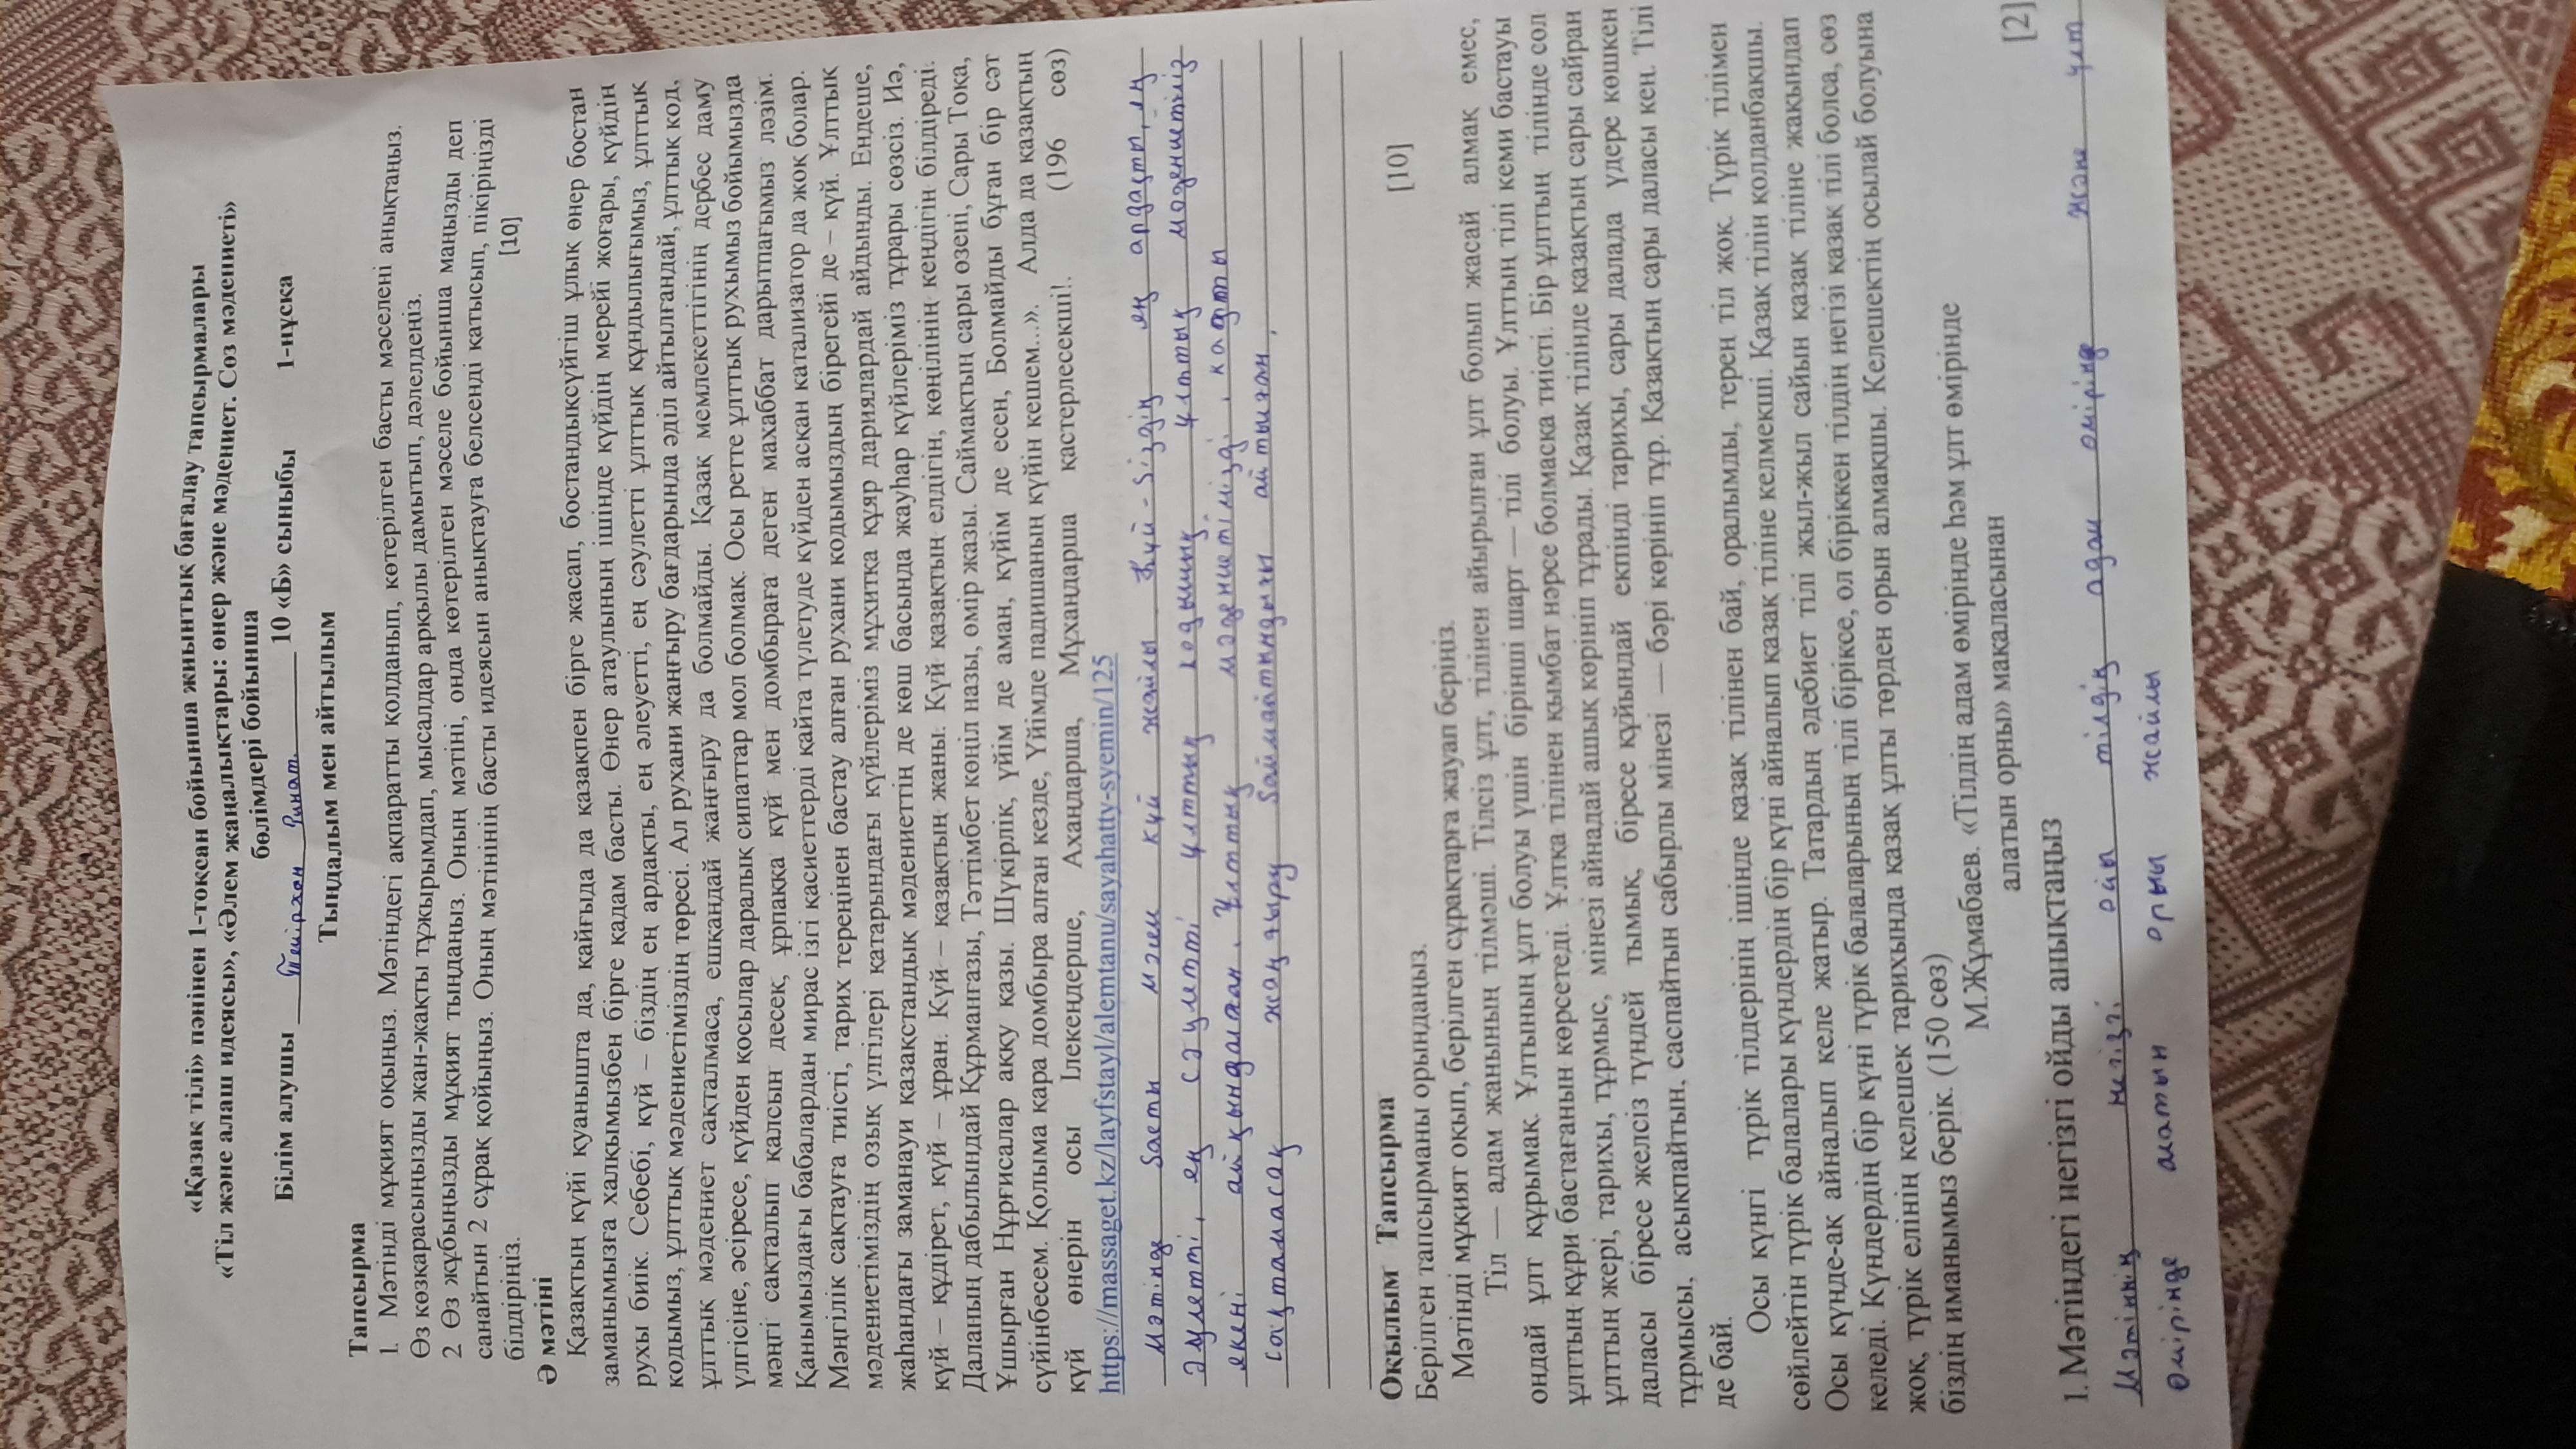 «Қазақ тілі» пәнінен 1-тоқсан бойынша жиынтық бағалау тапсырмалары
«Тіл және алаш идеясы», «Әлем жаңалықтары: өнер және мәдениет. Соз мәдениеті»
бөлімдері бойынша
Білім алушы Темірхан Ринат 10 «Б» сыныбы 1-нұсқа
Тыңдалым мен айтылым
Тапсырма
1. Мәтінді мұқият оқыңыз. Мәтіндегі ақпаратты қолданып, көтерілген басты мәселені анықтаңыз.
Өз көзқарасыңызды жан-жақты тұжырымдап, мысалдар арқылы дамытып, дәлелдеңіз.
2 Өз жұбыңызды мұқият тыңдаңыз. Оның мәтіні, онда көтерілген мәселе бойынша маңызды деп
санайтын 2 сұрақ қойыңыз. Оның мәтінінің басты идеясын анықтауға белсенді қатысып, пікіріңізді
білдіріңіз. [10]
Ә мәтіні
Қазақтың күйі қуанышта да, қайғыда да қазақпен бірге жасап, бостандықсүйгіш ұлық өнер бостан
заманымызға халқымызбен бірге қадам басты. Өнер атаулының ішінде күйдің мерейі жоғары, күйдің
рухы биік. Себебі, күй – біздің ең ардақты, ең әлеуетті, ең сәулетті ұлттық құндылығымыз, ұлттық
кодымыз, ұлттық мәдениетіміздің төресі. Ал рухани жаңғыру бағдарында әділ айтылғандай, ұлттық код,
ұлттық мәдениет сақталмаса, ешқандай жаңғыру да болмайды. Қазақ мемлекеттігінің дербес даму
үлгісіне, әсіресе, күйден қосылар даралық сипаттар мол болмақ. Осы ретте ұлттық рухымыз бойымызда
мәңгі сақталып қалсын десек, ұрпаққа күй мен домбыраға деген махаббат дарытпағымыз ләзім.
Қанымыздағы бабалардан мирас ізгі қасиеттерді қайта түлетуде күйден асқан катализатор да жоқ болар.
Мәңгілік сақтауға тиісті, тарих тереңінен бастау алған рухани кодымыздың бірегейі де – күй. Ұлттық
мәдениетіміздің озық үлгілері қатарындағы күйлеріміз мұхитқа құяр дариялардай айдынды. Ендеше,
жаһандағы заманауи қазақстандық мәдениеттің де көш басында жауһар күйлеріміз тұрары сөзсіз. Иә,
күй – құдірет, күй – ұран. Күй – қазақтың жаны. Күй қазақтың елдігін, көңілінің кеңдігін білдіреді.
Даланың дабылындай Құрманғазы, Тәттімбет көңіл назы, өмір жазы. Саймақтың сары өзені, Сары Тоқа,
Ұшырған Нұрғисалар аққу қазы. Шүкірлік, үйім де аман, күйім де есен, Болмайды бұған бір сәт
сүйінбесем. Қолыма қара домбыра алған кезде, Үйімде падишаның күйін кешем...». Алда да қазақтың
күй өнерін осы Ілекеңдерше, Ахаңдарша, Мұхаңдарша қастерлесекші!. (196 сөз)
https://massaget.kz/layfstayl/alemtanu/sayahatty-syemin/125
мәтінде басты мән күй жайлы. Күй - біздің ең ардақты, ең
әулетті, ең сәулетті ұлттық кодының ұлттық мәдениетіміз
екені айқындалған. Ұлттық мәдениетімізді, кодты
сақтамасақ жаңғыру баймайтындығы айтылған.
Оқылым Тапсырма [10]
Берілген тапсырманы орындаңыз.
Мәтінді мұқият оқып, берілген сұрақтарға жауап беріңіз.
Тіл — адам жанының тілмәші. Тілсіз ұлт, тілінен айырылған ұлт болып жасай алмақ емес,
ондай ұлт құрымақ. Ұлтының ұлт болуы үшін бірінші шарт — тілі болуы. Ұлттың тілі кеми бастауы
ұлттың құри бастағанын көрсетеді. Ұлтқа тілінен қымбат нәрсе болмасқа тиісті. Бір ұлттың тілінде сол
ұлттың жері, тарихы, тұрмыс, мінезі айнадай ашық көрініп тұрады. Қазақ тілінде қазақтың сары сайран
даласы біресе желсіз түндей тымық, біресе құйындай екпінді тарихы, сары далада үдере көшкен
тұрмысы, асықпайтын, саспайтын сабырлы мінезі — бәрі көрініп тұр. Қазақтың сары даласы кең. Тілі
де бай.
Осы күнгі түрік тілдерінің ішінде қазақ тілінен бай, оралымды, терең тіл жоқ. Түрік тілімен
сөйлейтін түрік балалары күндердің бір күні айналып қазақ тіліне келмекші. Қазақ тілін қолданбақшы.
Осы күнде-ақ айналып келе жатыр. Татардың әдебиет тілі жыл-жыл сайын қазақ тіліне жақындап
келеді. Күндердің бір күні түрік балаларының тілі біріксе, ол біріккен тілдің негізі қазақ тілі болса, сөз
жоқ, түрік елінің келешек тарихында қазақ ұлты төрден орын алмақшы. Келешектің осылай болуына
біздің иманымыз берік. (150 сөз)
М.Жұмабаев. «Тілдің адам өмірінде һәм ұлт өмірінде
алатын орны» мақаласынан
1. Мәтіндегі негізгі ойды анықтаңыз [2]
Мәтіннің негізгі ойы тілдің адам өмірінде және ұлт
өмірінде алатын орны жайлы